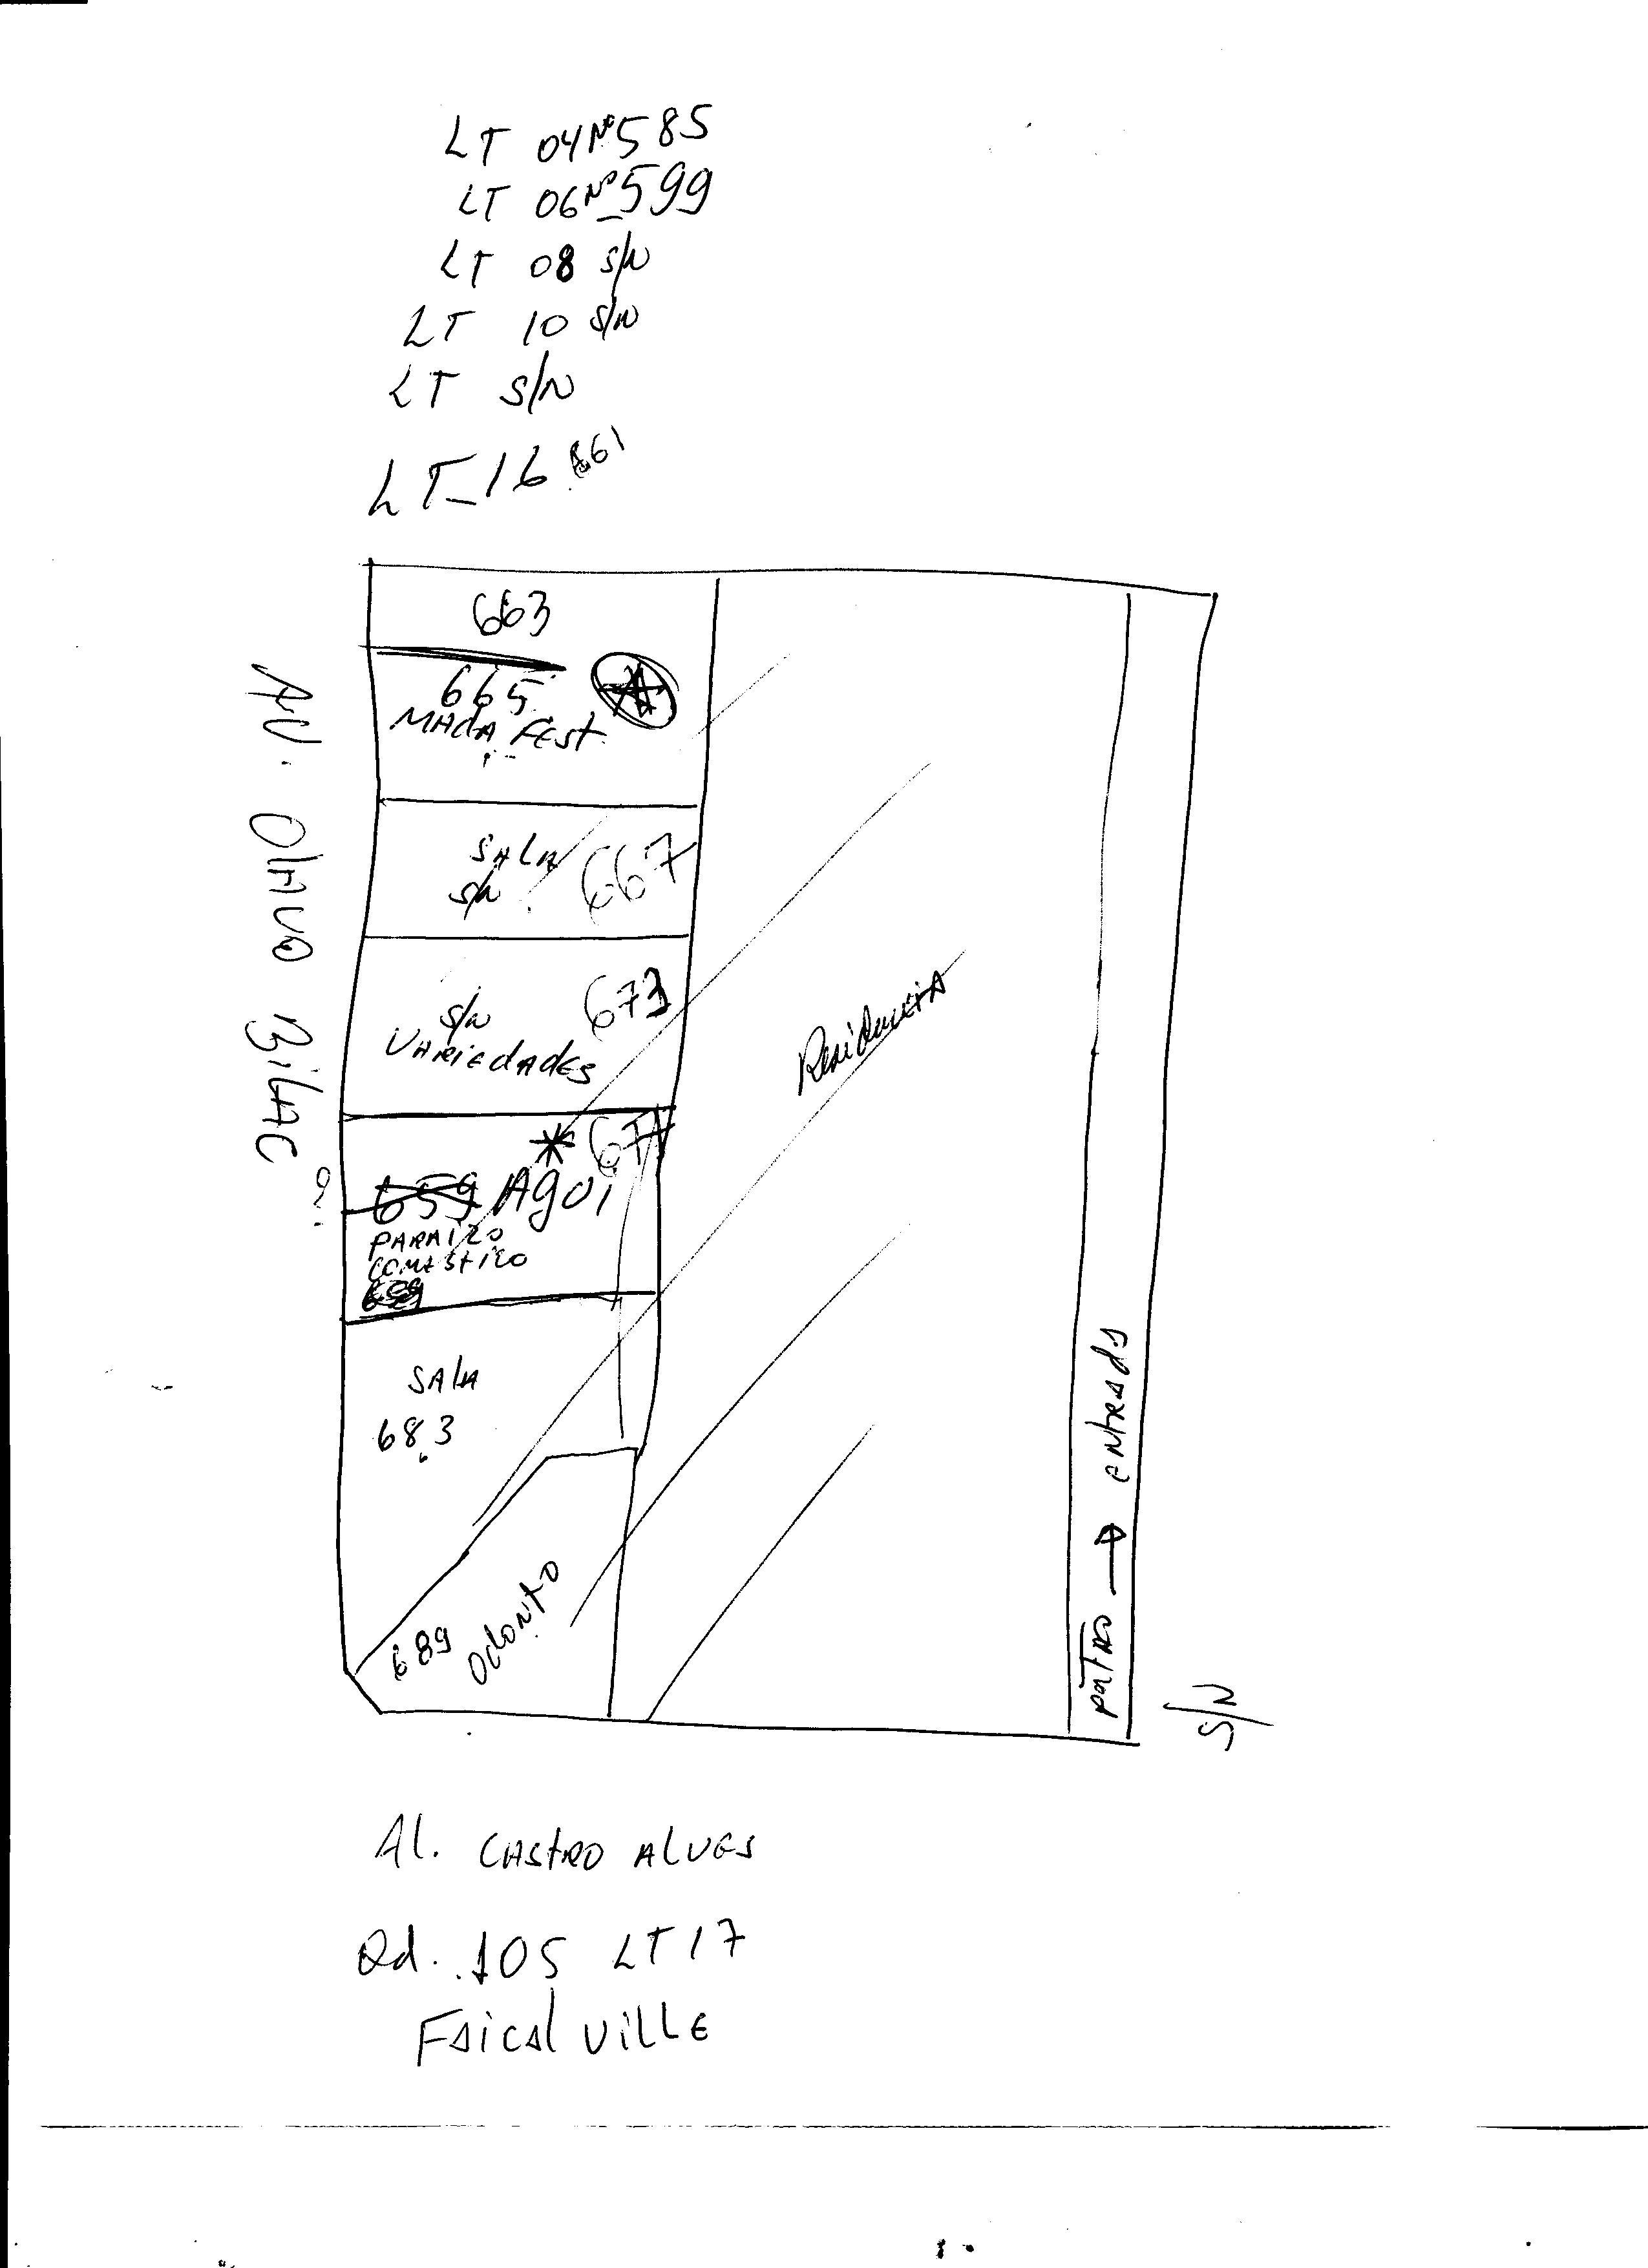 LT 04 Nº 585
LT 06 Nº 599
LT 08 S/N
LT 10 S/N
LT S/N
LT-16 661
663
665
MADA FEST
SALA 667
S/N
S/N 673
VARIEDADES
Residencia
AV. OLAVO BILAC
* 677
659 AQUI
PARAIZO
689
SALA
683
689 Odonto
portão → entrada
S/N
Al. CASTRO ALVES
Qd. 105 LT 17
FAICAL VILLE